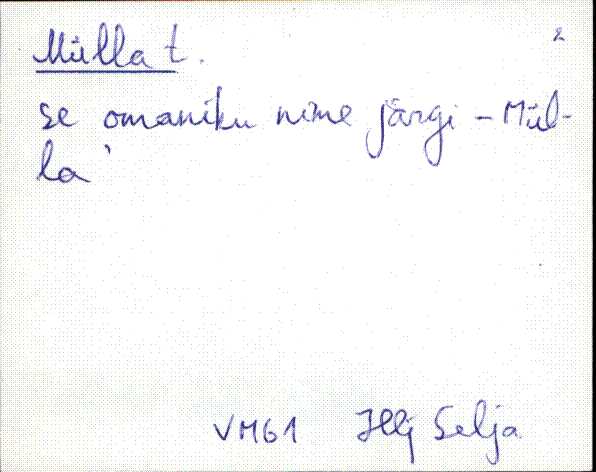 Mülla t.
2
se omaniku nime järgi – Mül-
la'
VM61 Hlj Selja